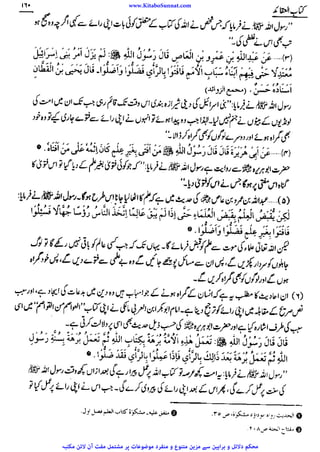 www.KitaboSunnat.com
کتاب العقائد
۱۶۰
”رسول اللہ ﷺ نے فرمایا کہ جس شخص نے اللہ کی کتاب کے متعلق کوئی بات اپنی رائے سے کہی اگرچہ وہ صحیح ہو
تب بھی اس نے غلطی کی۔“
(۳)— عَنْ عَبْدِاللّٰهِ بْنِ عَمْرِو بْنِ الْعَاصِ قَالَ قَالَ رَسُوْلُ اللّٰهِ ﷺ: لَمْ يَزَلْ اَمْرُ بَنِیْ اِسْرَائِيْلَ
مُعْتَدِلًا حَتّٰى
فِيْهِمْ اَبْنَاءُ سَبَايَا الْاُمَمِ فَاَفْتَوْا بِالرَّأْیِ فَضَلُّوْا وَاَضَلُّوْا۔ قَالَ يَحْيَى بْنُ الْقَطَّانِ
اِسْنَادُهٗ حَسَنٌ۔ (مجمع الزوائد)
رسول اللہ ﷺ نے فرمایا: ”بنی اسرائیل کی
اس وقت تک قائم رہی جب تک ان میں امت کی
بھی گمراہ ہوئے اور دوسرے لوگوں کو بھی گمراہ کر ڈالا۔“
(۴)— عَنْ اَبِیْ هُرَيْرَةَ قَالَ قَالَ رَسُوْلُ اللّٰهِ ﷺ: مَنْ اَفْتٰى بِغَيْرِ عِلْمٍ كَانَ اِثْمُهٗ عَلٰى مَنْ اَفْتَاهُ۔ ❶
حضرت ابوہریرہ ؓ سے روایت ہے رسول اللہ ﷺ نے فرمایا: ”جس کو بغیر علم کے فتویٰ دیا گیا تو اس فتویٰ کا
گناہ اس مفتی پر ہوگا جس نے اس کو فتویٰ دیا۔“
(۵)— عبداللہ بن عمرو بن عاص ؓ کی حدیث میں ہے کہ علم کا اٹھایا جانا اس طرح ہوگا۔ رسول اللہ ﷺ نے فرمایا:
لٰكِنْ يَقْبِضُ الْعِلْمَ بِقَبْضِ الْعُلَمَاءِ حَتّٰى اِذَا لَمْ يَبْقَ عَالِمًا اِتَّخَذَ النَّاسُ رُؤُسًا جُهَّالًا فَسُئِلُوْا
فَاَفْتَوْا بِغَيْرِ عِلْمٍ فَضَلُّوْا وَاَضَلُّوْا۔ ❷
لیکن اللہ تعالیٰ علماء کی موت سے علم کو قبض فرمائے گا۔ یہاں تک کہ جب کسی عالم کو باقی نہیں رکھے گا تو لوگ
جاہلوں کو سردار بنا لیں گے، پس ان سے مسائل پوچھے جائیں گے وہ بے علمی سے فتویٰ دیں گے، پس خود گمراہ
ہوں گے اور لوگوں کو بھی گمراہ کریں گے۔
(۶) ان احادیث کا مطلب یہ ہے کہ انسان کے گمراہ ہونے کے جو اسباب ہیں وہ دین میں بدعات کی ایجاد ہے، اور سبب
نص صریح کے مقابلہ میں اپنی رائے کو ترجیح دینا ہے۔ امام ابوبکر ابن العربی مالکی نے اپنی کتاب ”العواصم من القواصم“ میں اسی
سبب کی طرف اشارہ کیا ہے اور حضرت ابوہریرہ ؓ کی حسب ذیل حدیث بھی اسی پر دلالت کرتی ہے۔
قَالَ قَالَ رَسُوْلُ اللّٰهِ ﷺ: تَعْمَلُ هٰذِهِ الْاُمَّةُ بُرْهَةً بِكِتَابِ اللّٰهِ ثُمَّ تَعْمَلُ بُرْهَةً بِسُنَّةِ رَسُوْلِ
اللّٰهِ ثُمَّ تَعْمَلُ بُرْهَةً بَعْدَ ذٰلِكَ بِالرَّأْیِ فَاِذَا عَمِلُوْا بِالرَّأْیِ فَقَدْ ضَلُّوْا۔ ❸
”رسول اللہ ﷺ نے فرمایا: یہ امت کچھ عرصہ تو کتاب اللہ پر عمل پیرا رہے گی بعد ازاں کچھ وقت رسول اللہ
کی سنت پر عمل کرے گی، پھر اس کے بعد اپنی رائے کی پیروی کرے گی۔ جب اس نے اپنی رائے پر عمل کیا تو
❶ الحدیث رواہ ابوداؤد، مشکوٰۃ، ص ۳۵.
❷ متفق علیہ، مشکوٰۃ کتاب العلم فصل اول.
❸ مفتاح الجنة ص ۲۰۸.
محکم دلائل و براہین سے مزین متنوع و منفرد موضوعات پر مشتمل مفت آن لائن مکتبہ